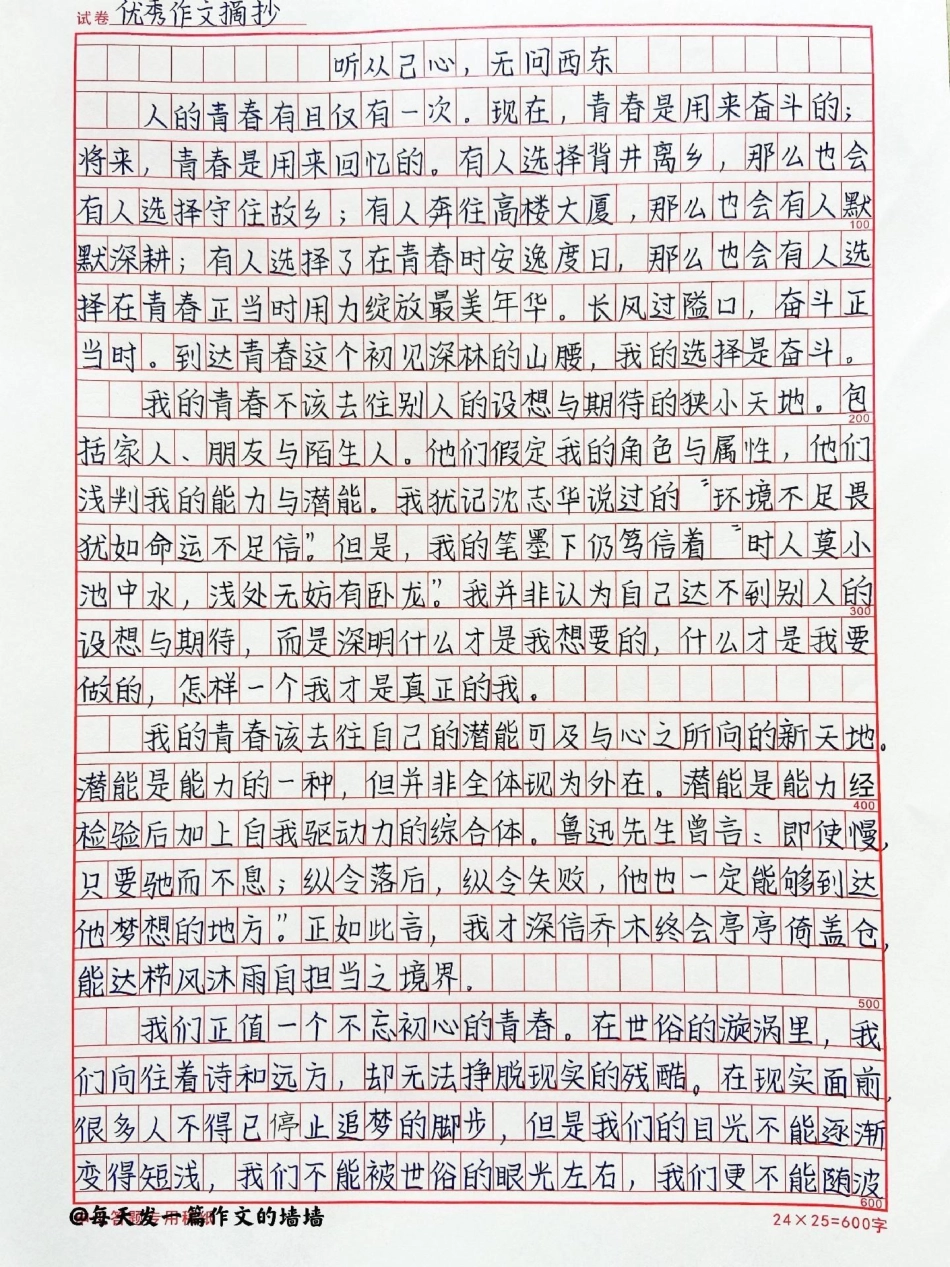 试卷 优秀作文摘抄
听从己心，无问西东
人的青春有且仅有一次。现在，青春是用来奋斗的；
将来，青春是用来回忆的。有人选择背井离乡，那么也会
有人选择守住故乡；有人奔往高楼大厦，那么也会有人默
100
默深耕；有人选择了在青春时安逸度日，那么也会有人选
择在青春正当时用力绽放最美年华。长风过隘口，奋斗正
当时。到达青春这个初见深林的山腰，我的选择是奋斗。
我的青春不该去往别人的设想与期待的狭小天地。包
200
括家人、朋友与陌生人。他们假定我的角色与属性，他们
浅判我的能力与潜能。我犹记沈志华说过的“环境不足畏
犹如命运不足信”。但是，我的笔墨下仍笃信着“时人莫小
池中水，浅处无妨有卧龙”。我并非认为自己达不到别人的
300
设想与期待，而是深明什么才是我想要的，什么才是我要
做的，怎样一个我才是真正的我。
我的青春该去往自己的潜能可及与心之所向的新天地。
潜能是能力的一种，但并非全体现为外在。潜能是能力经
400
检验后加上自我驱动力的综合体。鲁迅先生曾言：即使慢，
只要驰而不息；纵令落后，纵令失败，他也一定能够到达
他梦想的地方”。正如此言，我才深信乔木终会亭亭倚盖仓，
能达栉风沐雨自担当之境界。
500
我们正值一个不忘初心的青春。在世俗的漩涡里，我
们向往着诗和远方，却无法挣脱现实的残酷。在现实面前，
很多人不得已停止追梦的脚步，但是我们的目光不能逐渐
变得短浅，我们不能被世俗的眼光左右，我们更不能随波
600
@每天发一篇作文的墙墙
24×25=600字